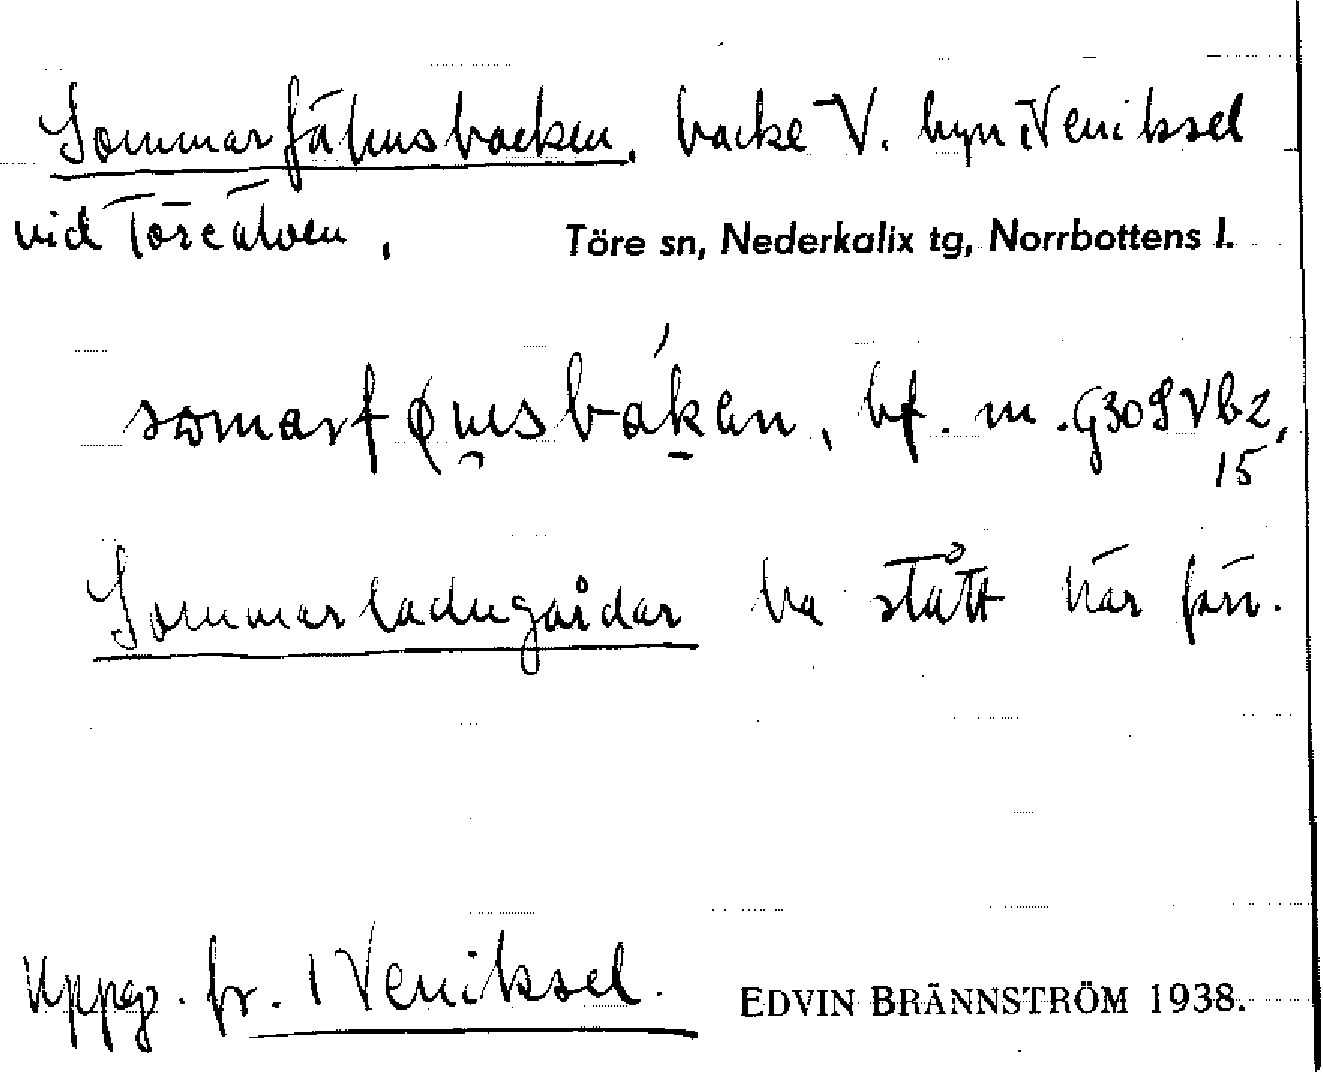 Sommarfähusbacken, backe V. byn i Veniksel
vid Töreälven,
Töre sn, Nederkalix tg, Norrbottens l.
bf. m.
Sommarladugårdar ha stått här förr.
Uppg. fr. 1 Veniksel.
EDVIN BRÄNNSTRÖM 1938.